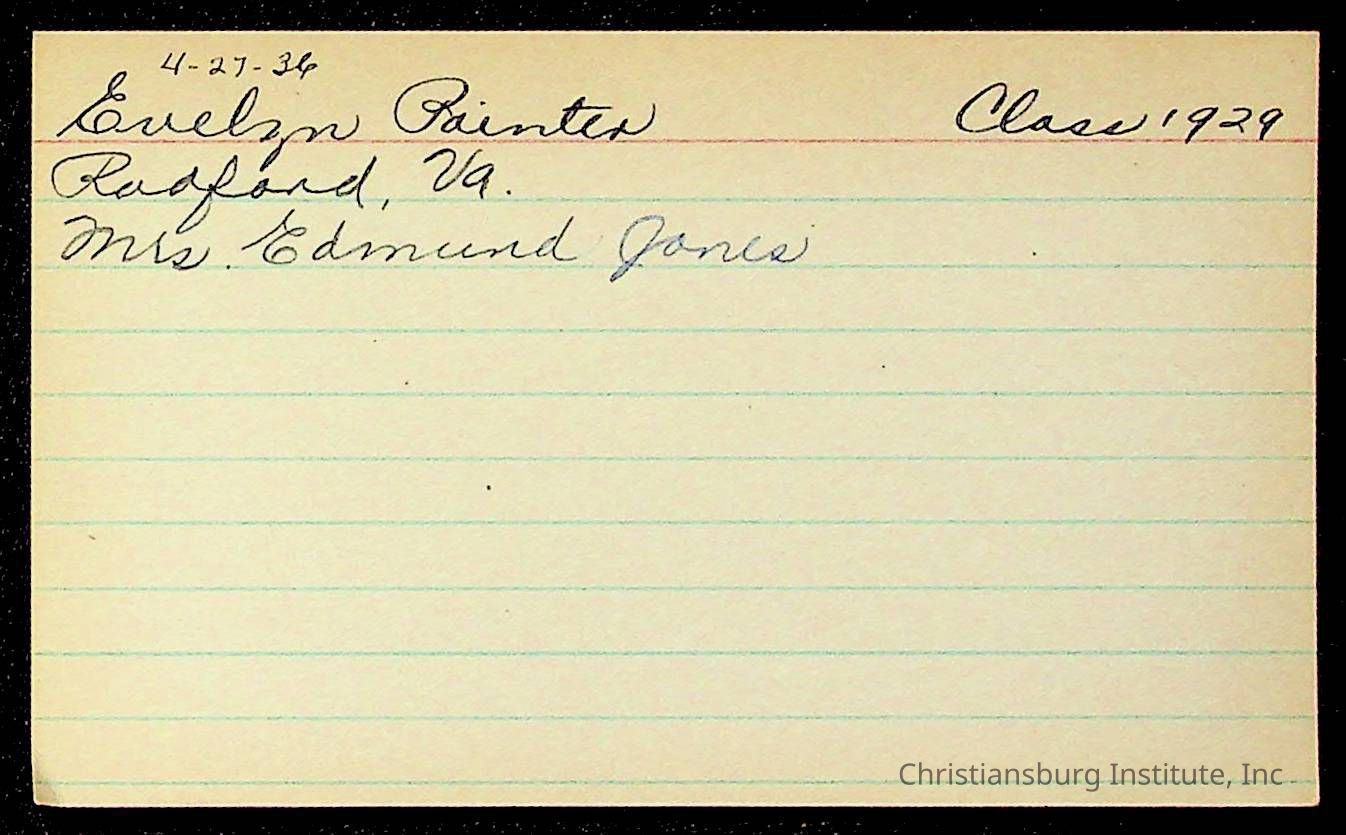 4-27-36
Evelyn Painter Class 1929
Radford, Va.
Mrs. Edmund Jones
Christiansburg Institute, Inc